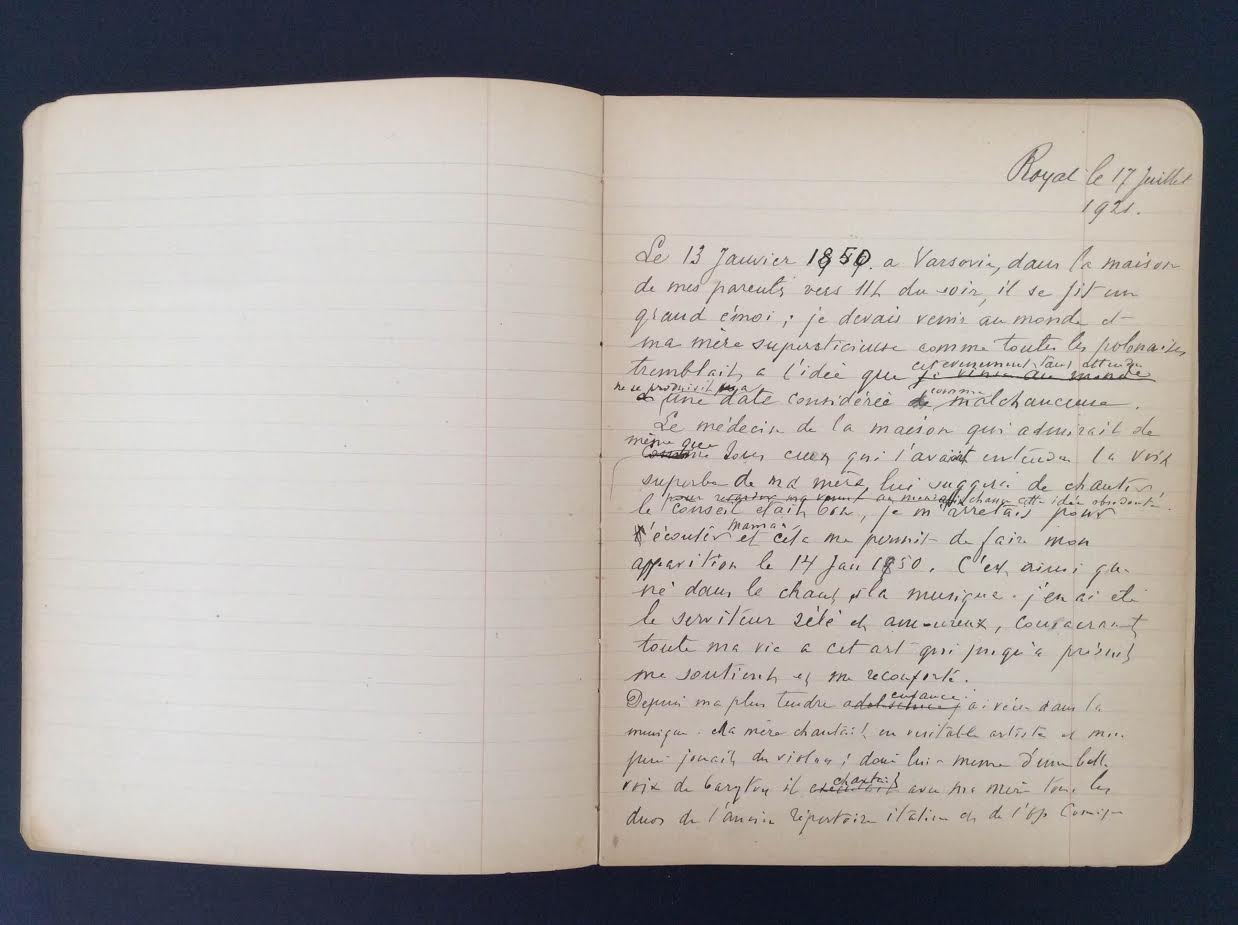 Royat le 17 Juillet
1921.
Le 13 Janvier 1850. a Varsovie, dans la maison
de mes parents vers 11h du soir, il se fit un
grand émoi ; je devais venir au monde et
ma mère supersticieuse comme toutes les polonaises
cet evenement tant attendu
tremblait a l'idée que je vienne au monde
ne se produisit
a une date considérée comme malchanceuse.
Le médecin de la maison qui admirait de
même que
comme tous ceux qui l'avait entendu la voix
superbe de ma mère, lui suggera de chanter
pour ma venue au monde changer cette idée obsédante.
le conseil était bon, je m'arretais pour
maman
l'écouter et cela me permit de faire mon
apparition le 14 Jan 1850. C'est ainsi que
né dans le chant, la musique. j'en ai été
le serviteur zélé et amoureux, consacrant
toute ma vie a cet art qui jusqu'a présent
me soutient et me reconforte.
enfance
Depuis ma plus tendre adolescence j'ai vécu dans la
musique. Ma mère chantait en veritable artiste et mon
père jouait du violon ; doué lui-meme d'une belle
chantait
voix de baryton il avec ma mère tous les
duos de l'ancien répertoire italien et de l'Op Comique